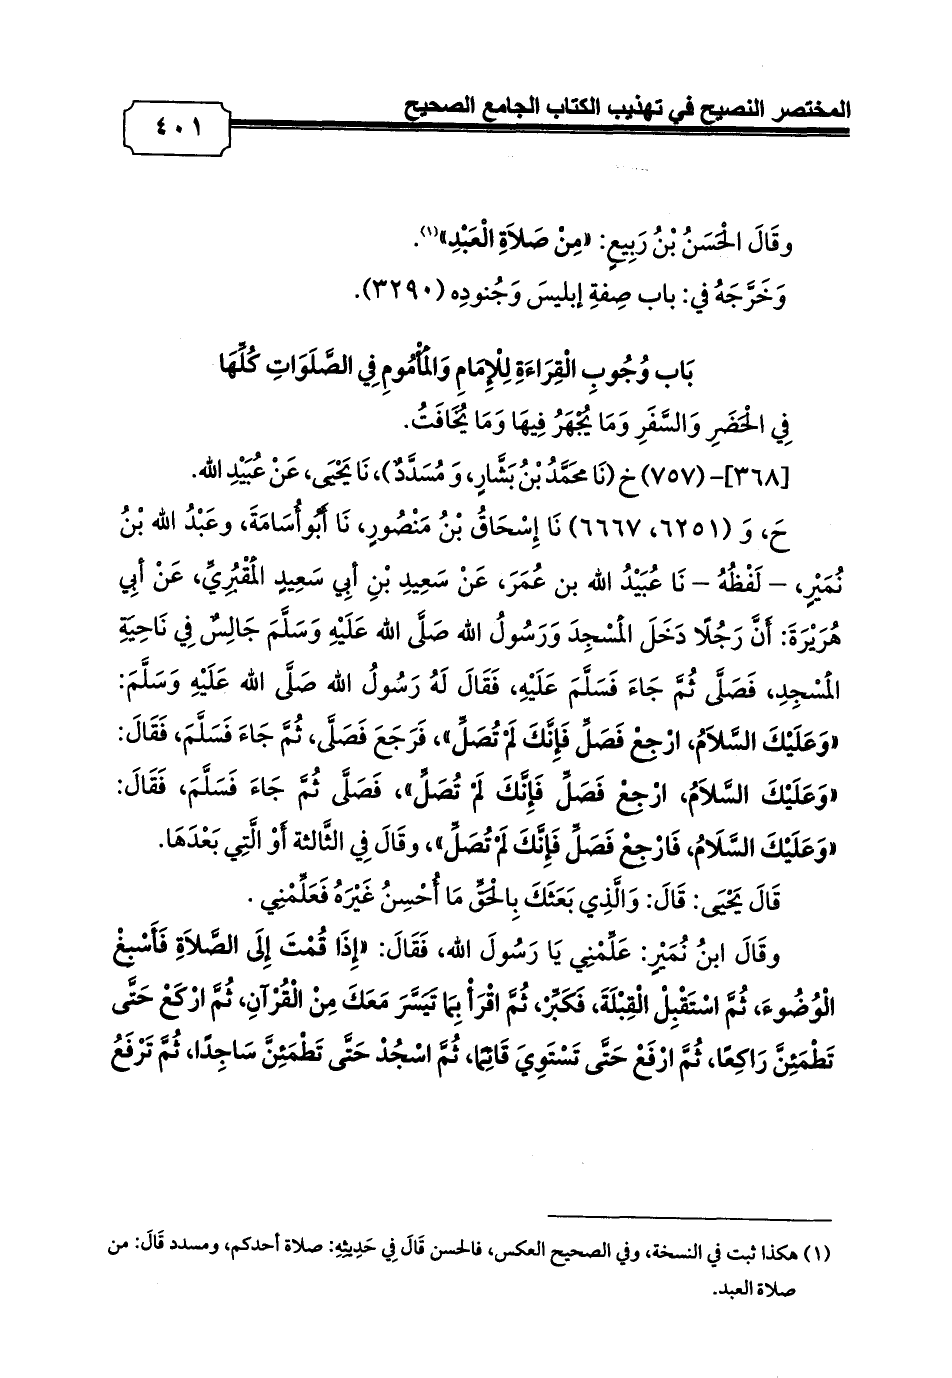 المختصر النصيح في تهذيب الكتاب الجامع الصحيح
٤٠١
وقَالَ الْحَسَنُ بْنُ رَبِيعٍ: «مِنْ صَلاَةِ الْعَبْدِ»(١).
وَخَرَّجَهُ في: باب صِفةِ إبليسَ وَجُنودِه (٣٢٩٠).
بَاب وُجُوبِ الْقِرَاءَةِ لِلْإِمَامِ وَالْمَأْمُومِ فِي الصَّلَوَاتِ كُلِّهَا
فِي الْحَضَرِ وَالسَّفَرِ وَمَا يُجْهَرُ فِيهَا وَمَا يُخَافَتُ.
[٣٦٨]- (٧٥٧) خ (نَا محَمَّدُ بْنُ بَشَّارٍ، وَ مُسَدَّدٌ)، نَا يَحْيَى، عَنْ عُبَيْدِ الله.
حَ، وَ (٦٢٥١، ٦٦٦٧) نَا إِسْحَاقُ بْنُ مَنْصُورٍ، نَا أَبُو أُسَامَةَ، وعَبْدُ الله بْنُ
نُمَيْرٍ، – لَفْظُهُ – نَا عُبَيْدُ الله بن عُمَرَ، عَنْ سَعِيدِ بْنِ أبي سَعِيدٍ الْمَقْبُرِيِّ، عَنْ أبِي
هُرَيْرَةَ: أَنَّ رَجُلًا دَخَلَ الْمَسْجِدَ وَرَسُولُ الله صَلَّى الله عَلَيْهِ وَسَلَّمَ جَالِسٌ فِي نَاحِيَةِ
الْمَسْجِدِ، فَصَلَّى ثُمَّ جَاءَ فَسَلَّمَ عَلَيْهِ، فَقَالَ لَهُ رَسُولُ الله صَلَّى الله عَلَيْهِ وَسَلَّمَ:
«وَعَلَيْكَ السَّلاَمُ، ارْجِعْ فَصَلِّ فَإِنَّكَ لَمْ تُصَلِّ»، فَرَجَعَ فَصَلَّى، ثُمَّ جَاءَ فَسَلَّمَ، فَقَالَ:
«وَعَلَيْكَ السَّلاَمُ، ارْجِعْ فَصَلِّ فَإِنَّكَ لَمْ تُصَلِّ»، فَصَلَّى ثُمَّ جَاءَ فَسَلَّمَ، فَقَالَ:
«وَعَلَيْكَ السَّلَامُ، فَارْجِعْ فَصَلِّ فَإِنَّكَ لَمْ تُصَلِّ»، وقَالَ فِي الثَّالثة أَوْ الَّتِي بَعْدَهَا.
قَالَ يَحْيَى: قَالَ: وَالَّذِي بَعَثَكَ بِالْحَقِّ مَا أُحْسِنُ غَيْرَهُ فَعَلِّمْنِي .
وقَالَ ابنُ نُمَيْرٍ: عَلِّمْنِي يَا رَسُولَ الله، فَقَالَ: «إِذَا قُمْتَ إِلَى الصَّلاَةِ فَأَسْبِغْ
الْوُضُوءَ، ثُمَّ اسْتَقْبِلْ الْقِبْلَةَ، فَكَبِّرْ، ثُمَّ اقْرَأْ بِمَا تَيَسَّرَ مَعَكَ مِنْ الْقُرْآنِ، ثُمَّ ارْكَعْ حَتَّى
تَطْمَئِنَّ رَاكِعًا، ثُمَّ ارْفَعْ حَتَّى تَسْتَوِيَ قَائِمًا، ثُمَّ اسْجُدْ حَتَّى تَطْمَئِنَّ سَاجِدًا، ثُمَّ تَرْفَعُ
(١) هكذا ثبت في النسخة، وفي الصحيح العكس، فالحسن قَالَ فِي حَدِيثِهِ: صلاة أحدكم، ومسدد قَالَ: من
صلاة العبد.